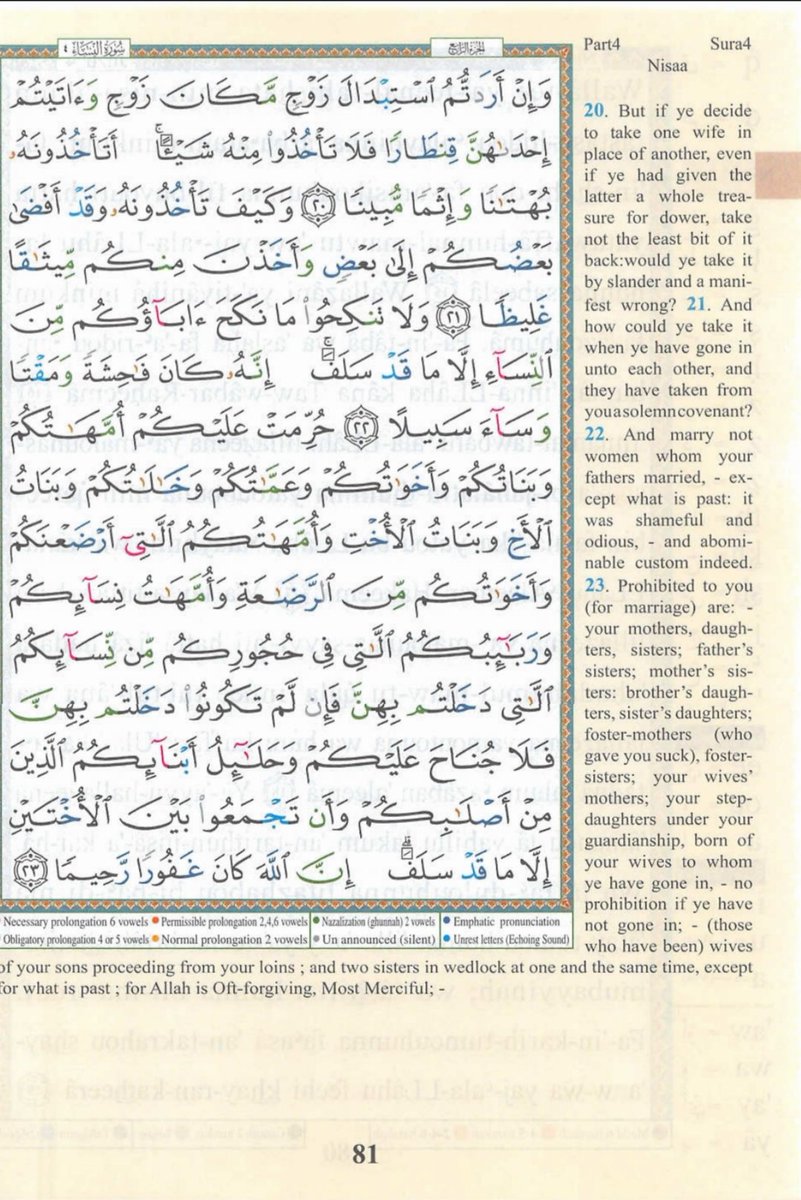 سُورَةُ النِّسَاءِ ٤
الجزء الرابع
وَإِنْ أَرَدتُّمُ ٱسْتِبْدَالَ زَوْجٍ مَّكَانَ زَوْجٍ وَءَاتَيْتُمْ
إِحْدَىٰهُنَّ قِنطَارًا فَلَا تَأْخُذُوا۟ مِنْهُ شَيْـًٔا ۚ أَتَأْخُذُونَهُۥ
بُهْتَـٰنًا وَإِثْمًا مُّبِينًا ٢٠ وَكَيْفَ تَأْخُذُونَهُۥ وَقَدْ أَفْضَىٰ
بَعْضُكُمْ إِلَىٰ بَعْضٍ وَأَخَذْنَ مِنكُم مِّيثَـٰقًا
غَلِيظًا ٢١ وَلَا تَنكِحُوا۟ مَا نَكَحَ ءَابَآؤُكُم مِّنَ
ٱلنِّسَآءِ إِلَّا مَا قَدْ سَلَفَ ۚ إِنَّهُۥ كَانَ فَـٰحِشَةً وَمَقْتًا
وَسَآءَ سَبِيلًا ٢٢ حُرِّمَتْ عَلَيْكُمْ أُمَّهَـٰتُكُمْ
وَبَنَاتُكُمْ وَأَخَوَٰتُكُمْ وَعَمَّـٰتُكُمْ وَخَـٰلَـٰتُكُمْ وَبَنَاتُ
ٱلْأَخِ وَبَنَاتُ ٱلْأُخْتِ وَأُمَّهَـٰتُكُمُ ٱلَّـٰتِىٓ أَرْضَعْنَكُمْ
وَأَخَوَٰتُكُم مِّنَ ٱلرَّضَـٰعَةِ وَأُمَّهَـٰتُ نِسَآئِكُمْ
وَرَبَـٰٓئِبُكُمُ ٱلَّـٰتِى فِى حُجُورِكُم مِّن نِّسَآئِكُمُ
ٱلَّـٰتِى دَخَلْتُم بِهِنَّ فَإِن لَّمْ تَكُونُوا۟ دَخَلْتُم بِهِنَّ
فَلَا جُنَاحَ عَلَيْكُمْ وَحَلَـٰٓئِلُ أَبْنَآئِكُمُ ٱلَّذِينَ
مِنْ أَصْلَـٰبِكُمْ وَأَن تَجْمَعُوا۟ بَيْنَ ٱلْأُخْتَيْنِ
إِلَّا مَا قَدْ سَلَفَ ۗ إِنَّ ٱللَّهَ كَانَ غَفُورًا رَّحِيمًا ٢٣
Necessary prolongation 6 vowels Permissible prolongation 2,4,6 vowels Nazalization (ghunnah) 2 vowels Emphatic pronunciation
Obligatory prolongation 4 or 5 vowels Normal prolongation 2 vowels Un announced (silent) Unrest letters (Echoing Sound)
Part4 Sura4
Nisaa
20. But if ye decide
to take one wife in
place of another, even
if ye had given the
latter a whole trea-
sure for dower, take
not the least bit of it
back:would ye take it
by slander and a mani-
fest wrong? 21. And
how could ye take it
when ye have gone in
unto each other, and
they have taken from
you a solemn covenant?
22. And marry not
women whom your
fathers married, - ex-
cept what is past: it
was shameful and
odious, - and abomi-
nable custom indeed.
23. Prohibited to you
(for marriage) are: -
your mothers, daugh-
ters, sisters; father's
sisters; mother's sis-
ters: brother's daugh-
ters, sister's daughters;
foster-mothers (who
gave you suck), foster-
sisters; your wives'
mothers; your step-
daughters under your
guardianship, born of
your wives to whom
ye have gone in, - no
prohibition if ye have
not gone in; - (those
who have been) wives
of your sons proceeding from your loins ; and two sisters in wedlock at one and the same time, except
for what is past ; for Allah is Oft-forgiving, Most Merciful; -
81